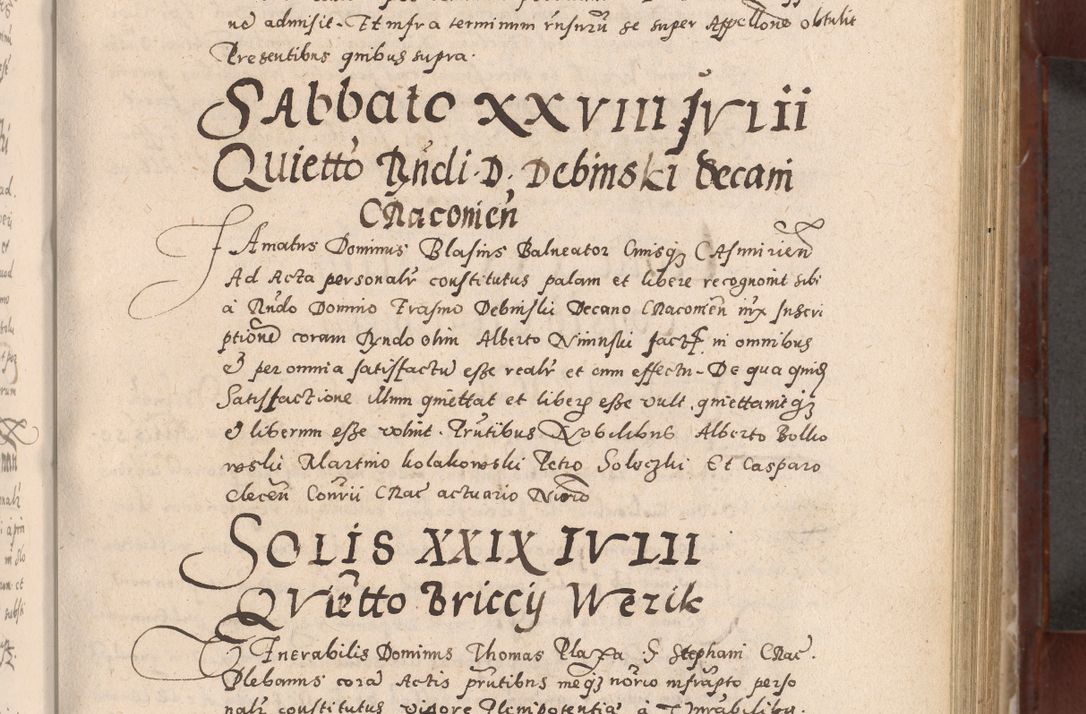 ne admisit. Et infra terminum jnsurrũ se super Appellone obtulit
Presentibus quibus supra.
SAbbato XXVIII IVLII
Quiettõ Rñdi D. Debinski Decani
CRaconień
FAmatus Dominus Blasius Balneator Civisq3 CAsmirień
Ad Acta personalr constitutus palam et libere recognovit sibi
à Rñdo Domino Erasmo Debinski Decano CRacomeń iux Inscri
ptionẽ coram Ryndo olim Alberto Niminski fact in omnibus
& per omnia satisfactũ esse realr et cum effectu. De qua quid
Satisfactione illum quiettat et liberũ esse vult. quiettavitq3
& liberum esse voluit. Prñtibus Nobilibus Alberto Bolko
wski Martino kolakowski Petro Soleczki Et Casparo
Clecen Convii CRac actuario Nico
SOLIS XXIX IVLII
QVietto Briccij Wezik
VEnerabilis Dominus Thomas Plaxa S Stephani CRac.
Plebanus corã Actis prñtibus meq3 norio infrapto perso
nalr constitutus vigore Plenipotentiæ à Venrabilibus